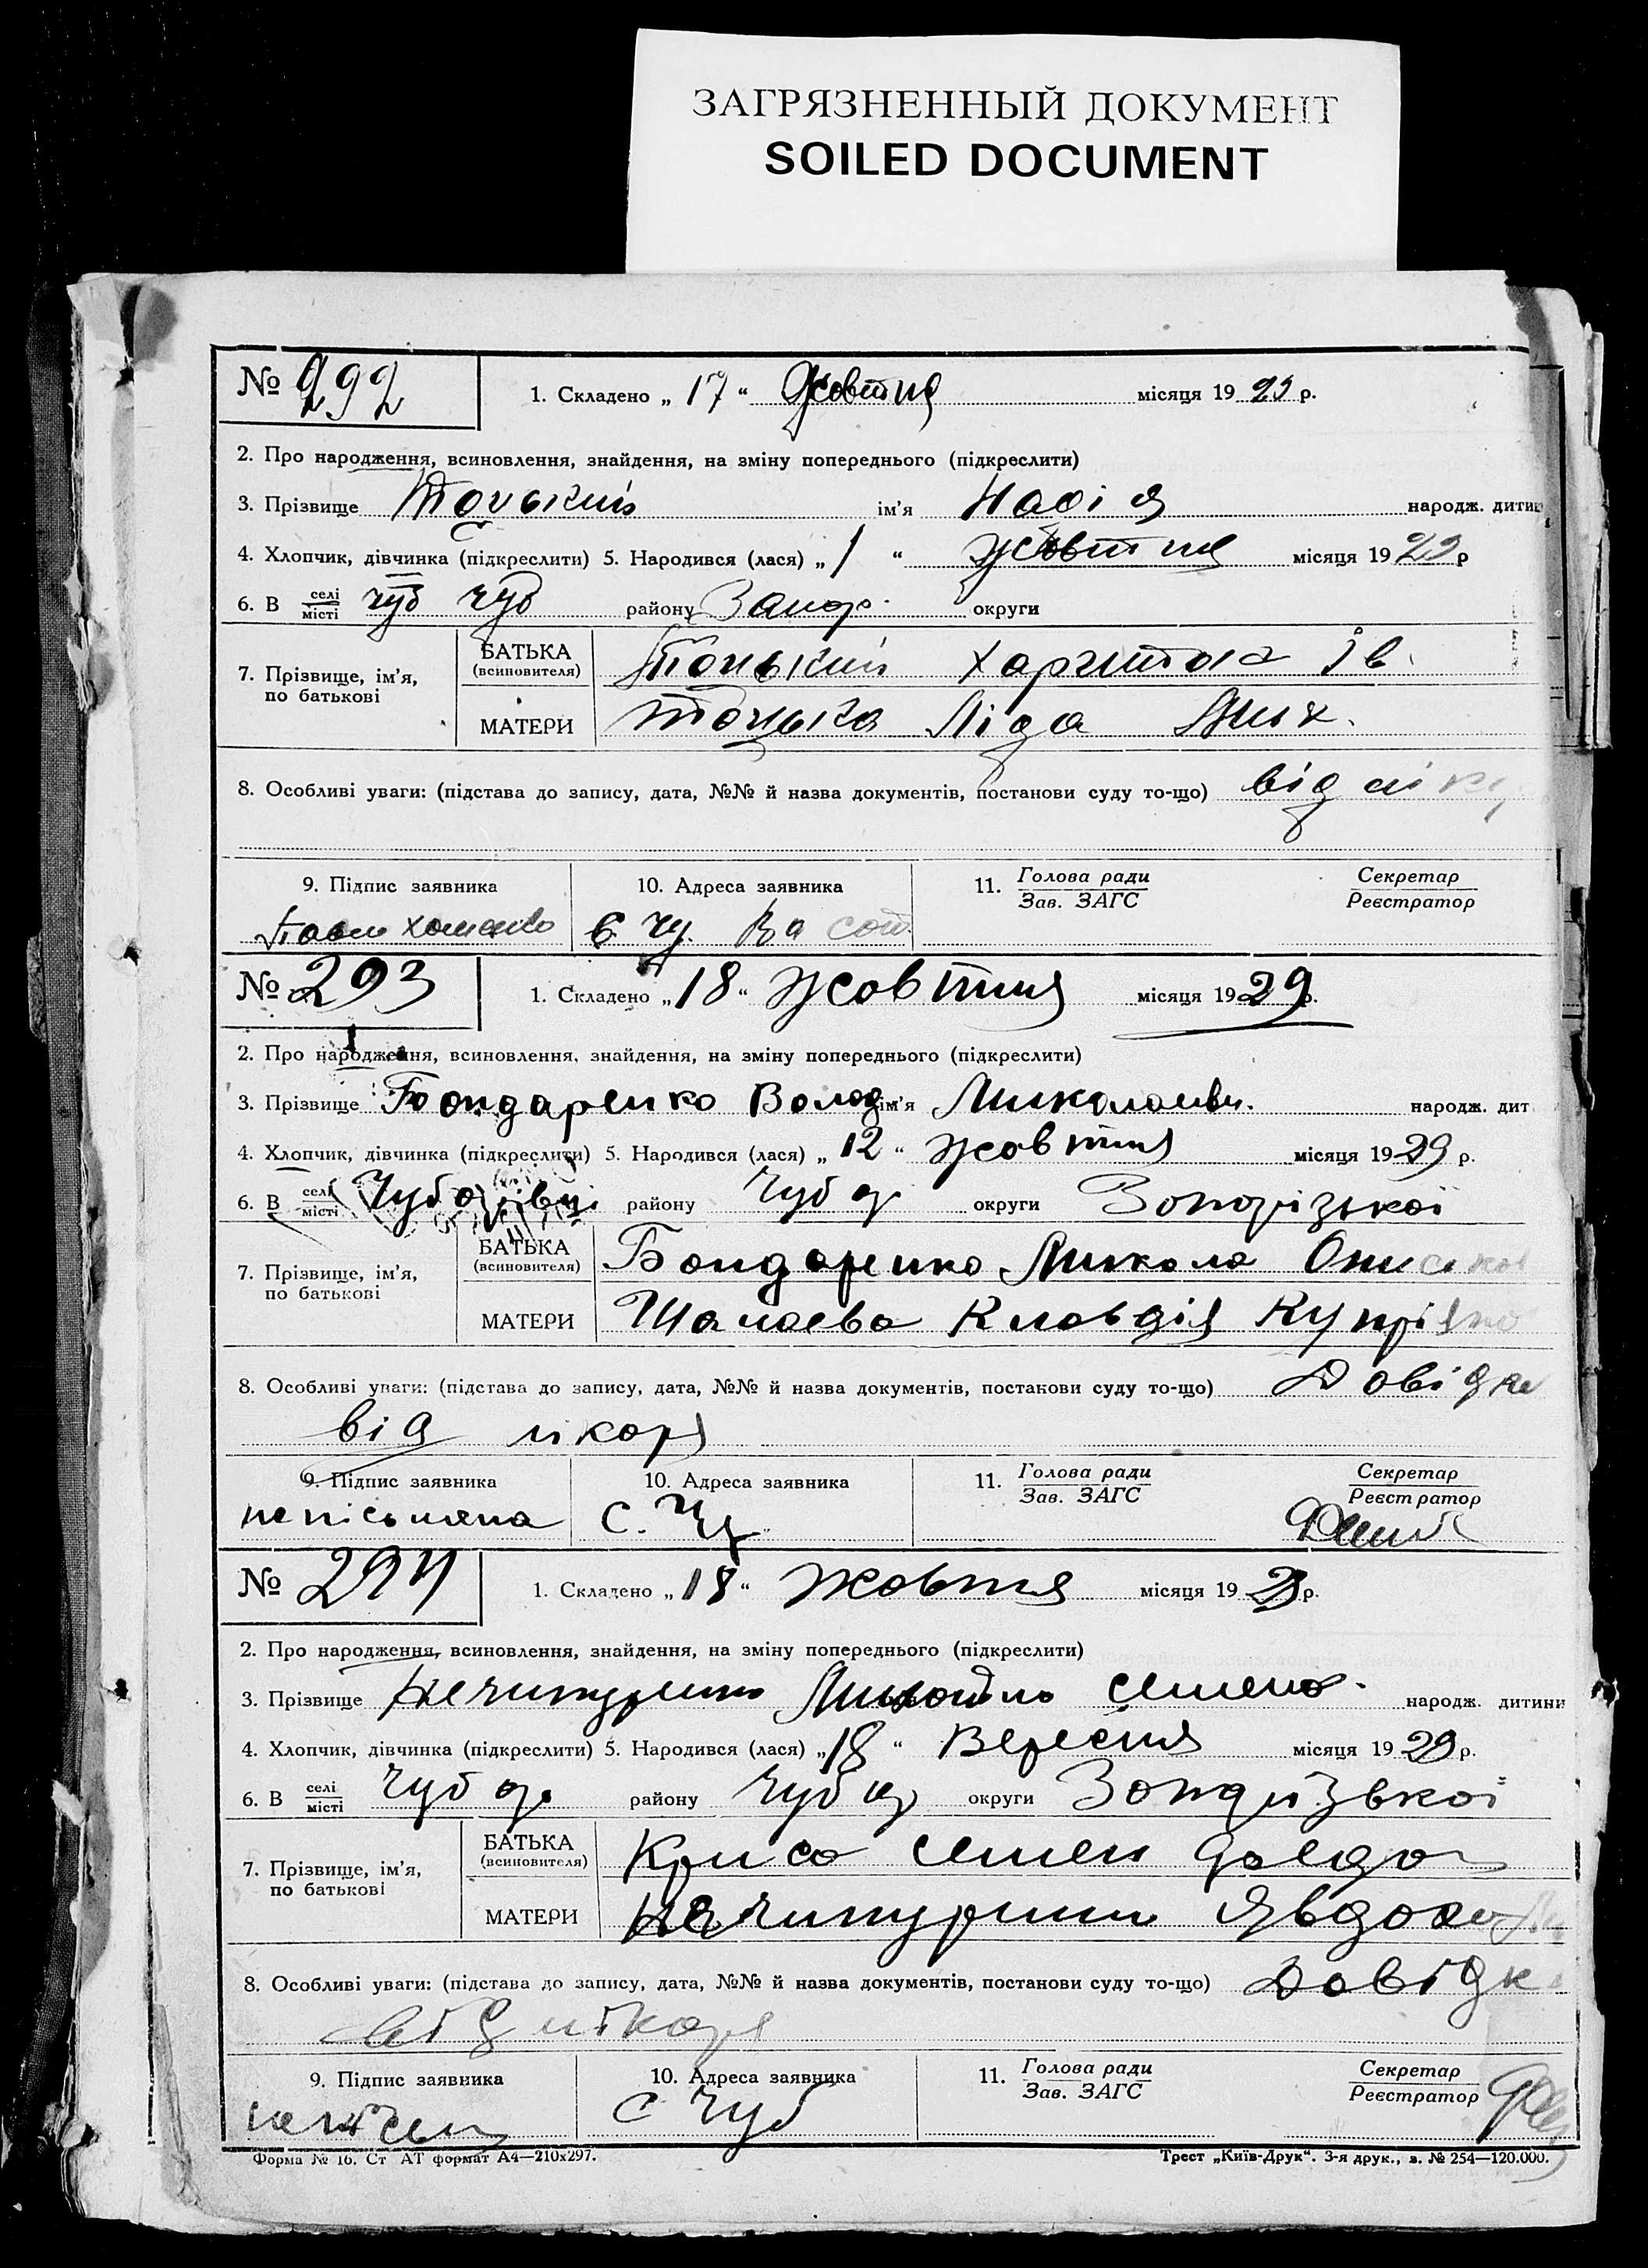 ЗАГРЯЗНЕННЫЙ ДОКУМЕНТ
SOILED DOCUMENT
№ 292 1. Складено „ 17 “ Жовтня місяця 19 29 р.
2. Про народження, всиновлення, знайдення, на зміну попереднього (підкреслити)
3. Прізвище ім'я Надія народж. дитин
4. Хлопчик, дівчинка (підкреслити) 5. Народився (лася) „ 1 “ жовтня місяця 19 29 р
6. В селі місті Чуб Чуб району Запор. округи
7. Прізвище, ім'я, по батькові БАТЬКА (всиновителя) Ів.
МАТЕРИ Ліда
8. Особливі уваги: (підстава до запису, дата, №№ й назва документів, постанови суду то-що) від
9. Підпис заявника 10. Адреса заявника 11. Голова ради Зав. ЗАГС Секретар Реєстратор
№ 293 1. Складено „ 18 “ жовтня місяця 19 29 р.
2. Про народження, всиновлення, знайдення, на зміну попереднього (підкреслити)
3. Прізвище Бондаренко Волод ім'я Миколаєви. народж. дит
4. Хлопчик, дівчинка (підкреслити) 5. Народився (лася) „ 12 “ жовтня місяця 19 29 р.
6. В селі місті Чубарівці району Чубар округи Запорізької
7. Прізвище, ім'я, по батькові БАТЬКА (всиновителя) Бондаренко Микола
МАТЕРИ Шалаева Клавдія Купріяно
8. Особливі уваги: (підстава до запису, дата, №№ й назва документів, постанови суду то-що) Довідка
від лікаря
9. Підпис заявника 10. Адреса заявника 11. Голова ради Зав. ЗАГС Секретар Реєстратор
неписьмена С. Чу
№ 294 1. Складено „ 18 “ жовтня місяця 19 29 р.
2. Про народження, всиновлення, знайдення, на зміну попереднього (підкреслити)
3. Прізвище Семено. народж. дитини
4. Хлопчик, дівчинка (підкреслити) 5. Народився (лася) „ 18 “ Вересня місяця 19 29 р.
6. В селі місті Чубар району Чубар округи Запорізької
7. Прізвище, ім'я, по батькові БАТЬКА (всиновителя) Криса Семен
МАТЕРИ Явдоха
8. Особливі уваги: (підстава до запису, дата, №№ й назва документів, постанови суду то-що) Довідк
від лікаря
9. Підпис заявника 10. Адреса заявника 11. Голова ради Зав. ЗАГС Секретар Реєстратор
С Чуб
Форма № 16. Ст АТ формат А4—210х297. Трест „Київ-Друк“. 3-я друк., з. № 254—120.000.